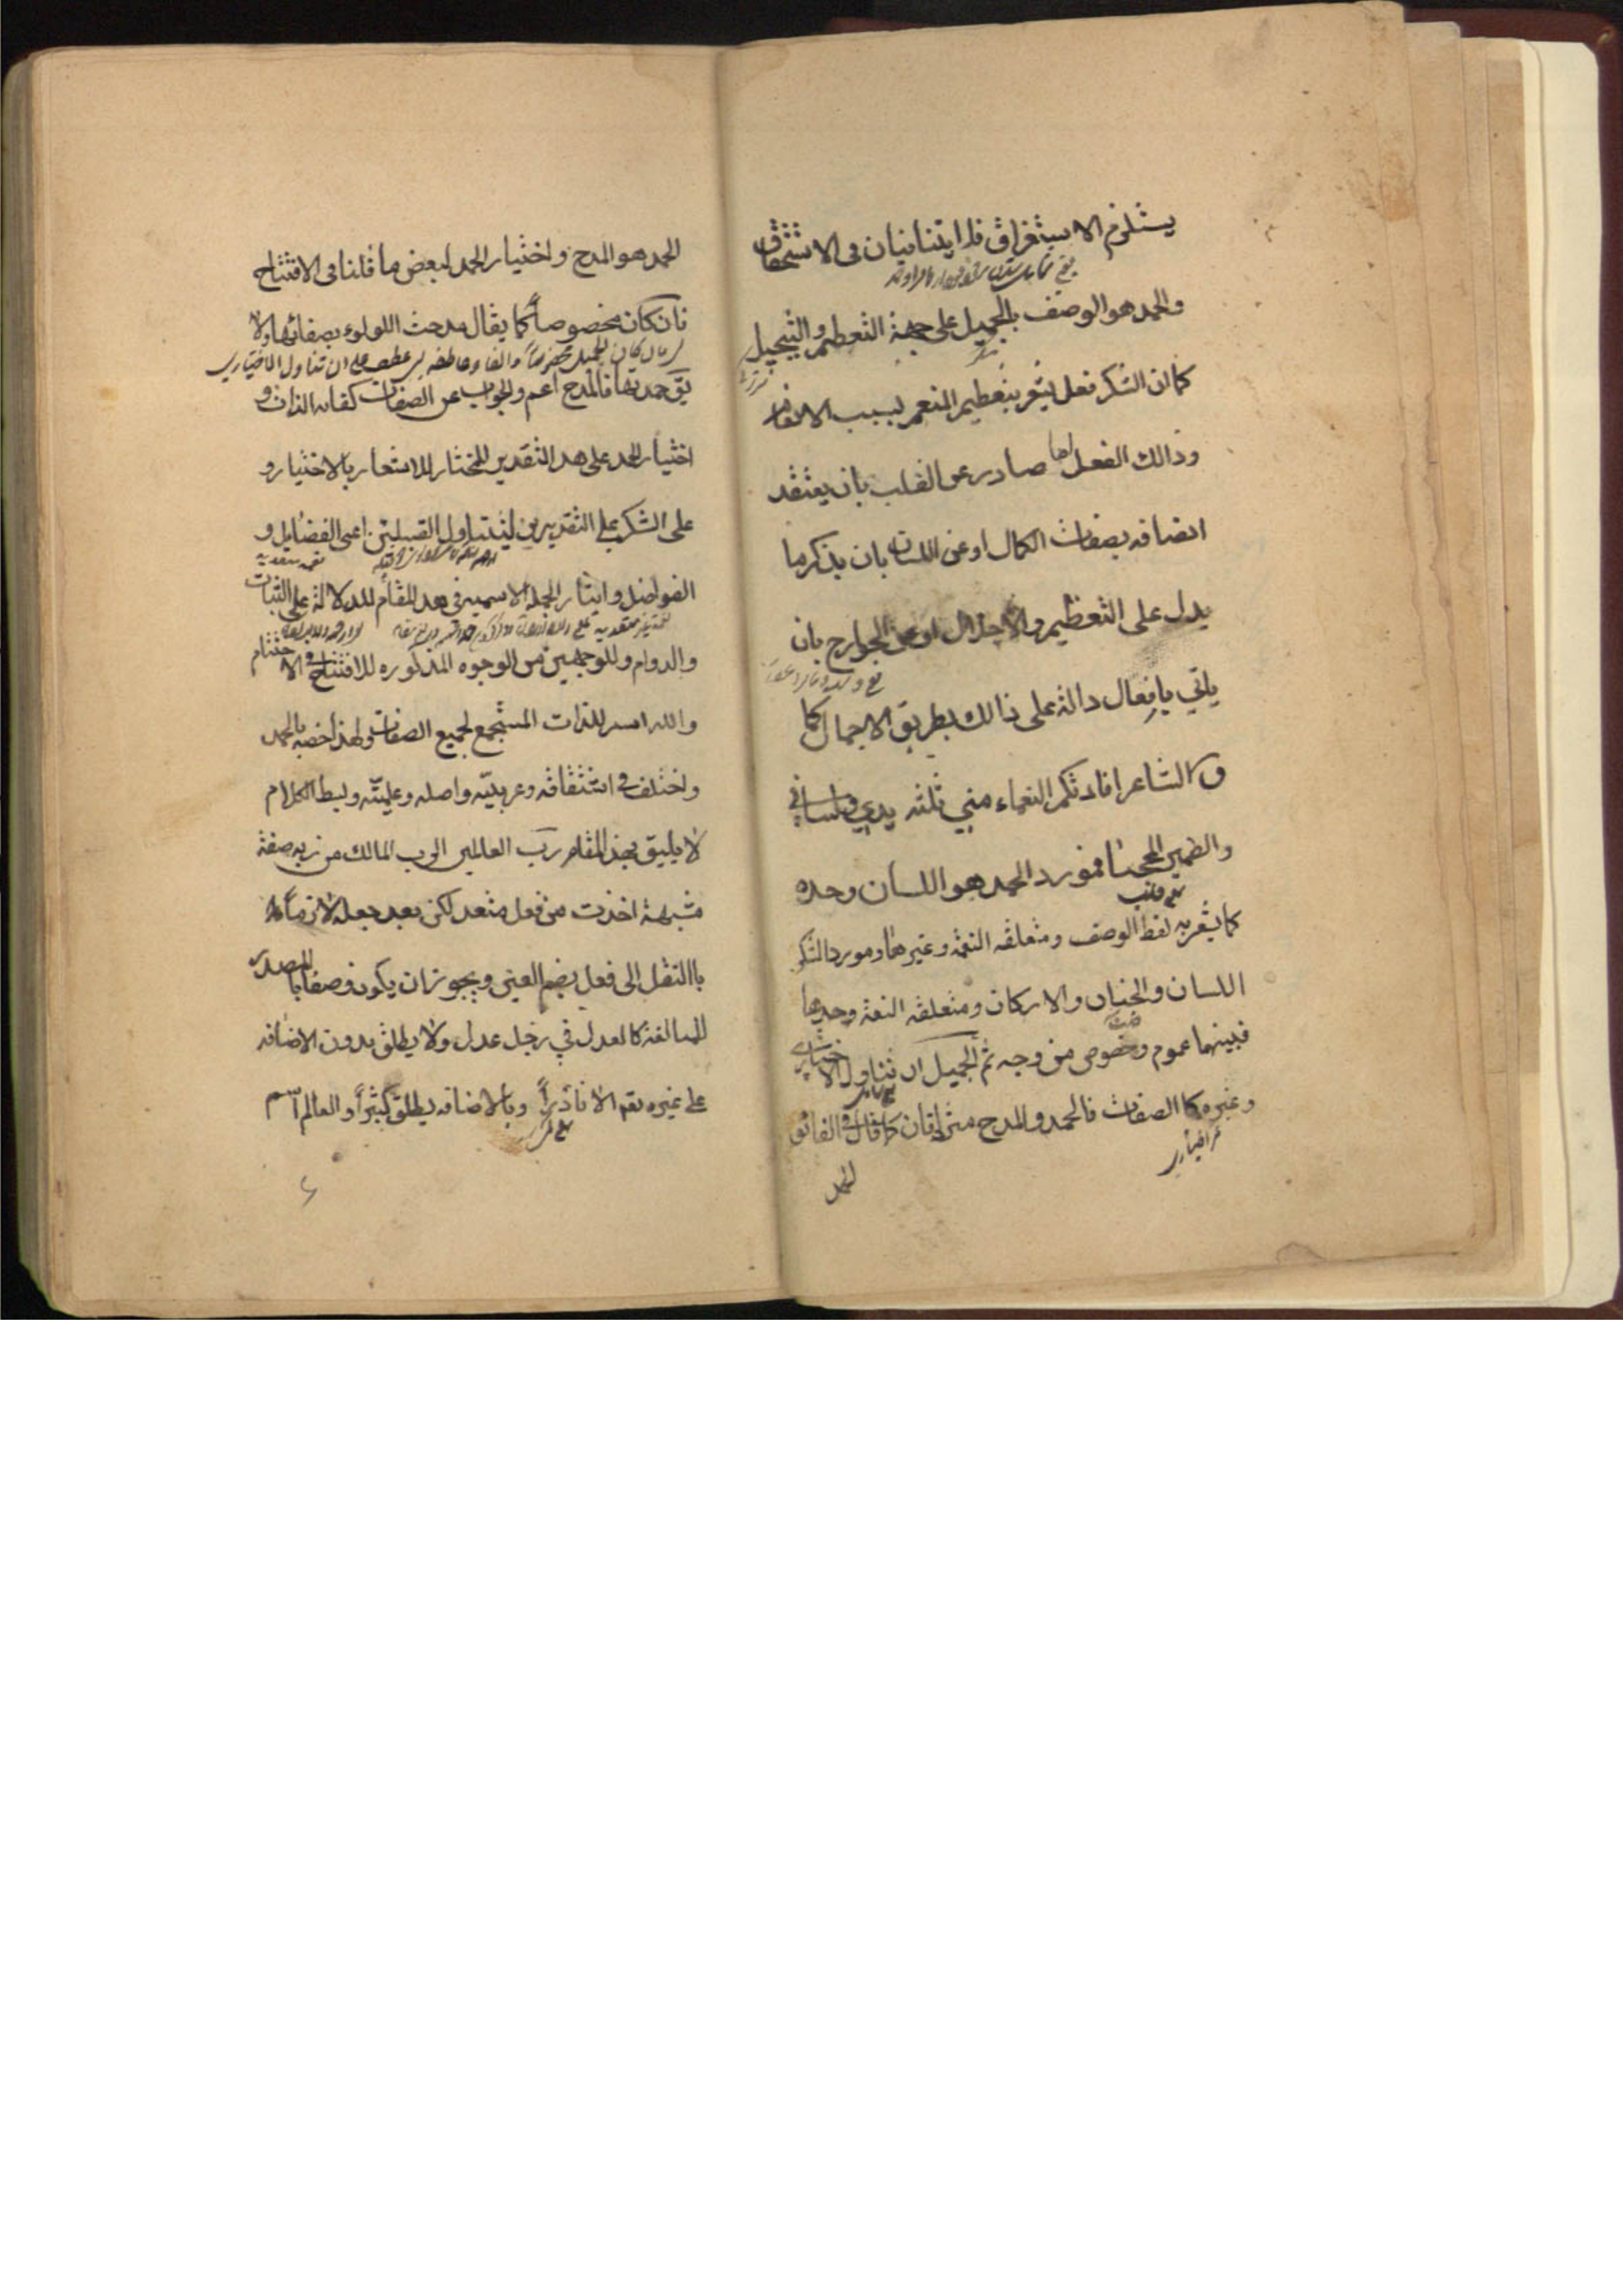 يستلزم الاستغراق فلا يتنافيان فى الاستحقاق
والحمد هو الوصف بالجميل على جهة التعظيم والتبجيل
كما ان الشكر فعل يشعر بتعظيم المنعم بسبب الانعام
وذالك الفعل اما صادر عن القلب بان يعتقد
اتصافه بصفات الكمال او عن اللسان بان يذكر ما
يدل على التعظيم والاجلال او عن الجوارح بان
ياتي بافعال دالة على ذالك بطريق الاجمال كما
ق‍ال الشاعر افادتكم النعماء مني ثلثه يدي ولساني
والضمير المحجبا فمورد الحمد هو اللسان وحده
كما يشعر به لفظ الوصف ومتعلقه النعمة وغيرها ومورد الشكر
اللسان والجنان والاركان ومتعلقه النعمة وحدها
فبينهما عموم وخصوص من وجه ثم الجميل ان تناول الاختياري
وغيره كا الصفات فالحمد والمدح مترادفان كما قال فى الفائق
الحمد
الحمد هو المدح واختيار الحمد لبعض ما قلنا فى الافتتاح
فان كان مخصوصاً كما يقال مدحت اللولوء بصفائها ولا
يق حمدتها فالمدح اعم والجواب عن الصفات كقاء الذات و
اختيار الحمد على هذ التقدير للمختار للاشعار بالاختيار و
على الشكر على التقديرين ليتناول القسيلتين اعنى الفضايل و
الفواضل وايثار الجملة الاسمية فى هذ المقام للدلالة على الثبات
والدوام وللوجهين من الوجوه المذكوره للافتتاح والاختتام
والله اسم للذات المستجمع لجميع الصفات ولهذا خصه بالحمد
واختلف في اشتقاقه وعربيته واصله وعلميته وبسط الكلام
لا يليق بهذ المقام رب العالمين الرب المالك من ربه صفة
مشبهة اخذت من فعل متعد لكن بعد جعله لازماً
باالنقل الى فعل بضم العين ويجوز ان يكون وصفا بالمصدر
للمبالغة كالعدل في رجل عدل ولا يطلق بدون الاضافه
على غيره تعم الا نادراً وبالاضافه يطلق كثيراً والعالم اسم